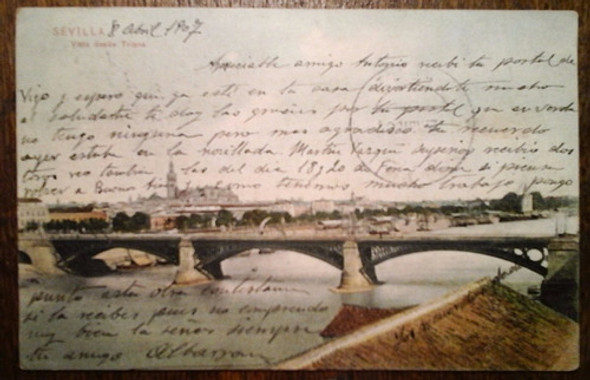 SEVILLA 8 Abril 1907
Vista desde Triana
Apreciable amigo Antonio recibi tu postal de
Vigo y espero que ya esté en tu casa divirtiendote mucho
el saludarte te doy las gracias por tu postal que en verda
no tengo ninguna pero mas agradezco tu recuerdo
ayer estube en la novillada Martin Vazquez recibió dos
toros veo tambien las del dia 18 y 20 de Feria dime si piensas
volver a Buenos Aires y como tendras mucho trabajo pongo
punto esta otra contestame
si la recibes pues no comprendo
muy bien la señas siempre
tu amigo Albarran